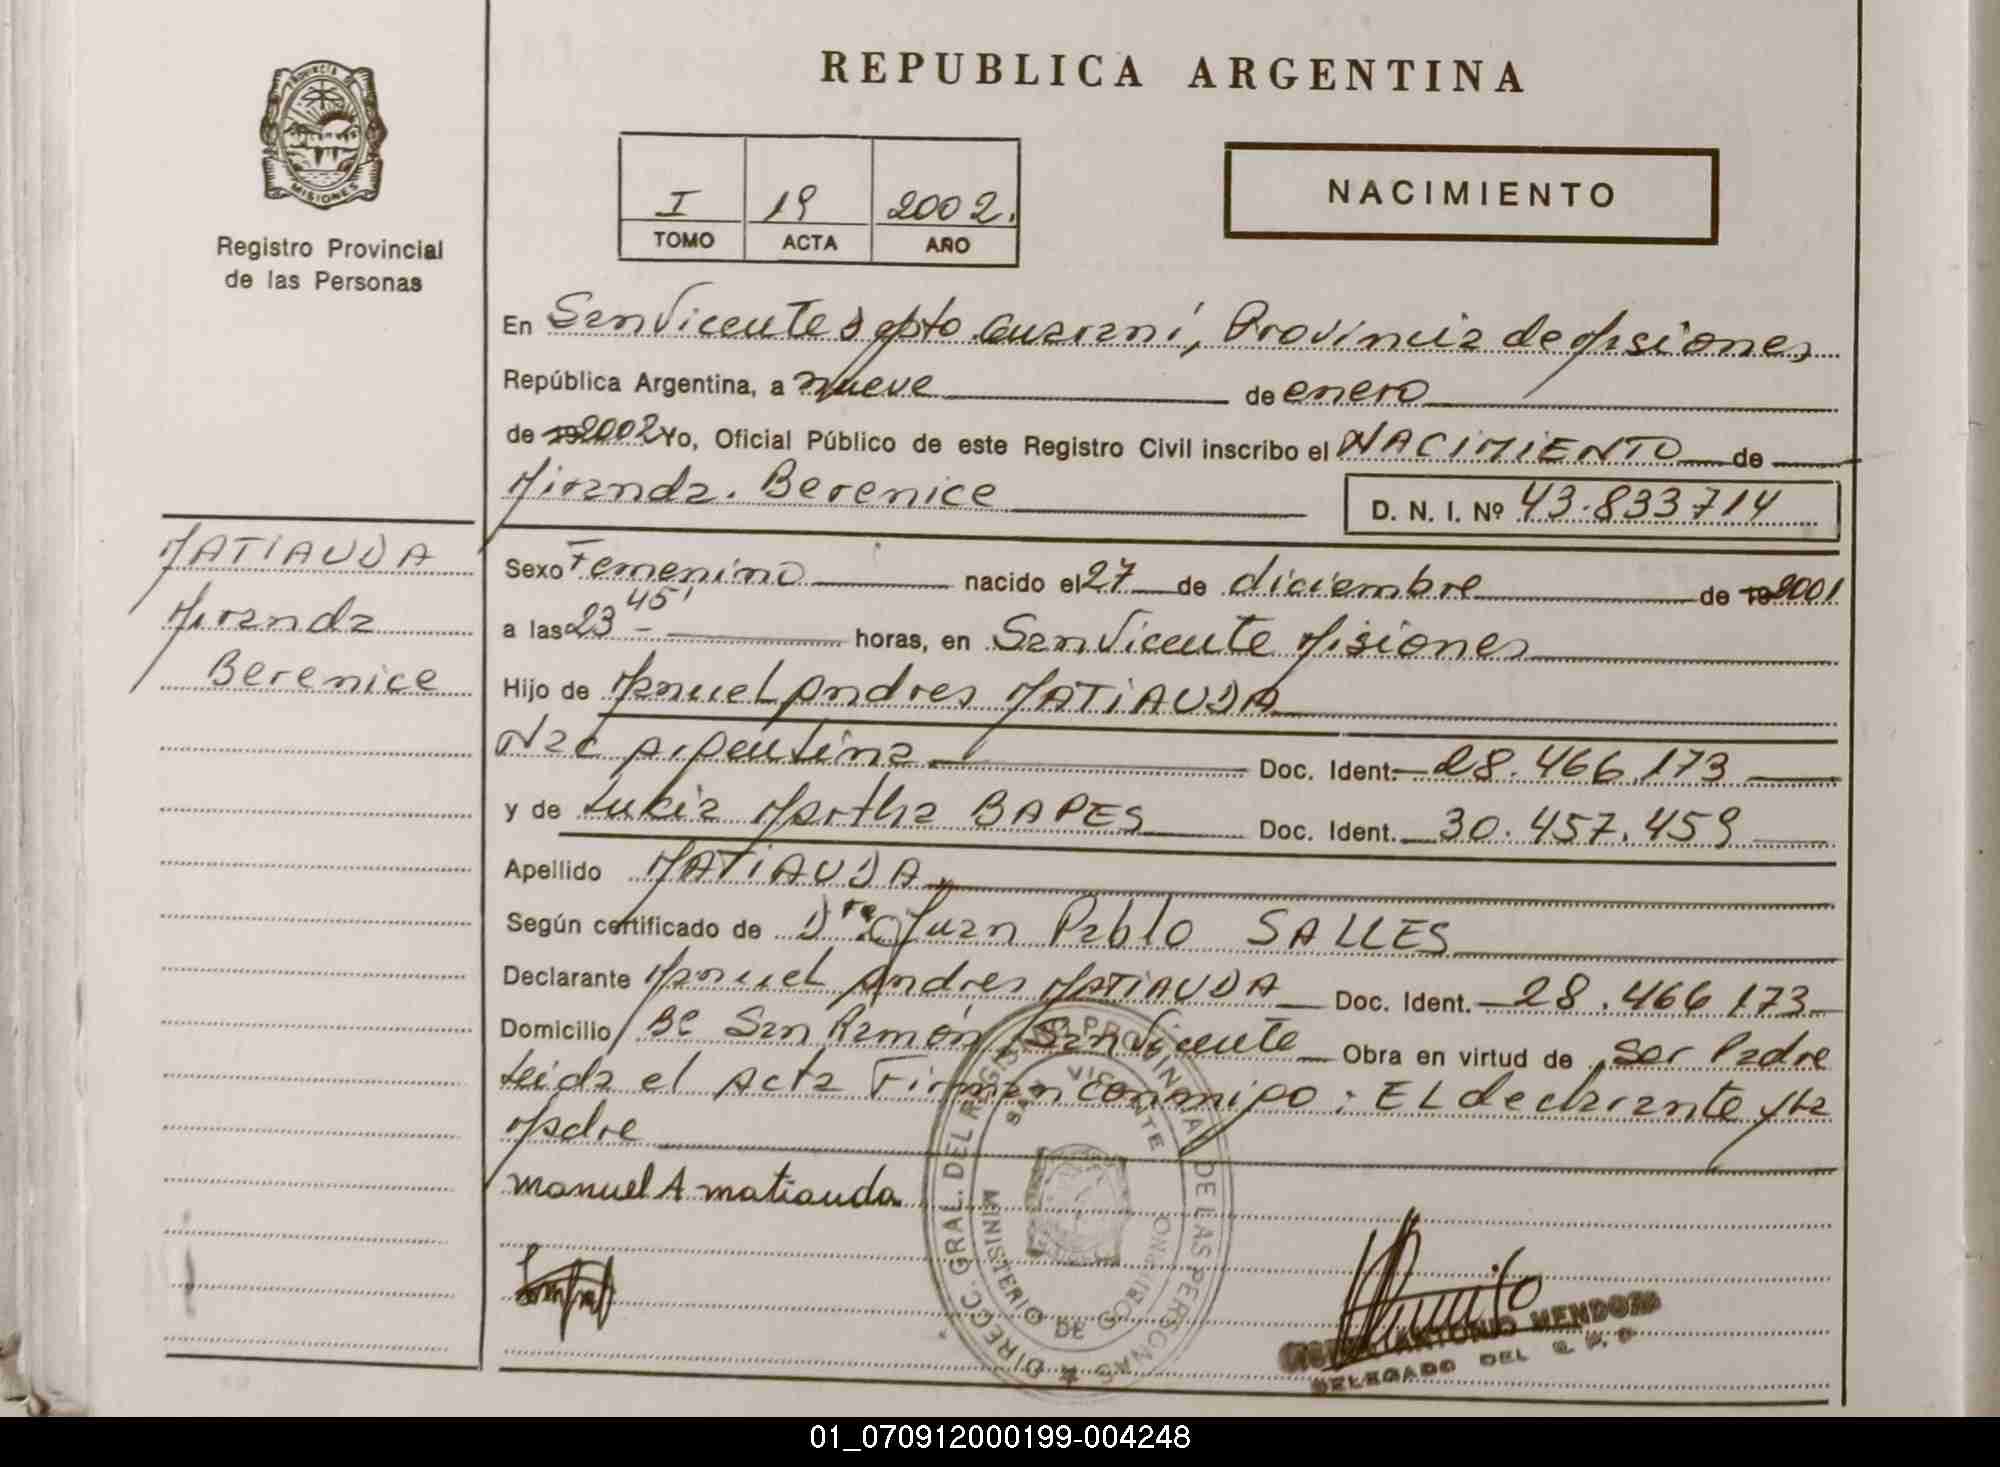 REPUBLICA ARGENTINA
PROVINCIA DE
MISIONES
Registro Provincial
de las Personas
I 19 2002.
TOMO ACTA AÑO
NACIMIENTO
En San Vicente Dpto Guarani, Provincia de Misiones
República Argentina, a nueve de enero
de 19 2002 Yo, Oficial Público de este Registro Civil inscribo el NACIMIENTO de
Miranda. Berenice D. N. I. Nº 43.833714
MATIAUDA
Miranda
Berenice
Sexo Femenino nacido el 27 de diciembre de 19 2001
a las 23 - 45' horas, en San Vicente Misiones
Hijo de Manuel Andres MATIAUDA
Nac Argentina Doc. Ident. 28.466.173
y de Lukia Martha BAPES Doc. Ident. 30.457.459
Apellido MATIAUDA
Según certificado de Dr Juan Pablo SALLES
Declarante Manuel Andres MATIAUDA Doc. Ident. 28.466 173
Domicilio Bº San Ramón, San Vicente Obra en virtud de Ser Padre
Leida el Acta Firman conmigo: EL declarante y la
Madre
manuel A matiauda
DIRECC. GRAL. DEL REGISTRO PROVINCIAL DE LAS PERSONAS
SAN VICENTE
MINISTERIO DE GOBIERNO
ANTONIO MENDOZA
DELEGADO DEL R. P. P
01_070912000199-004248